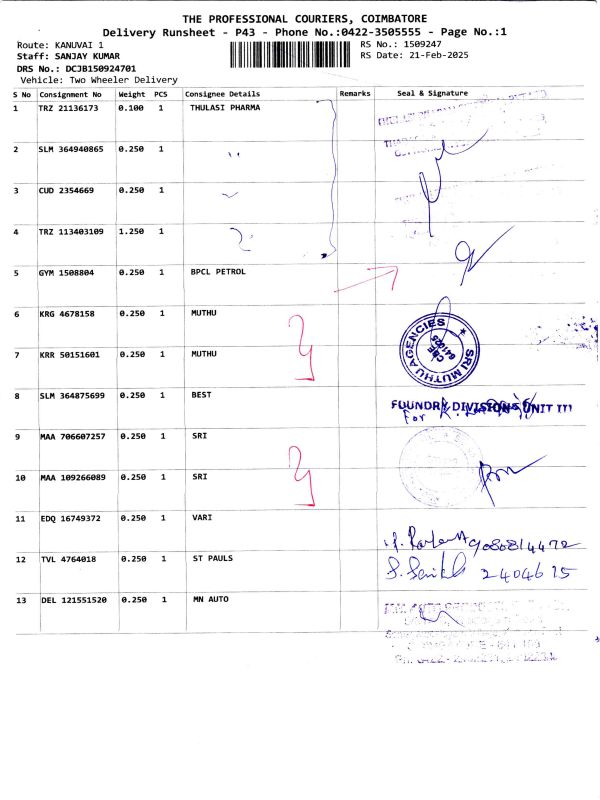 THE PROFESSIONAL COURIERS, COIMBATORE
Delivery Runsheet - P43 - Phone No.:0422-3505555 - Page No.:1
Route: KANUVAI 1
RS No.: 1509247
Staff: SANJAY KUMAR
RS Date: 21-Feb-2025
DRS No.: DCJB150924701
Vehicle: Two Wheeler Delivery
S No Consignment No Weight PCS Consignee Details Remarks Seal & Signature
1 TRZ 21136173 0.100 1 THULASI PHARMA
2 SLM 364940865 0.250 1
3 CUD 2354669 0.250 1
4 TRZ 113403109 1.250 1
5 GYM 1508804 0.250 1 BPCL PETROL
6 KRG 4678158 0.250 1 MUTHU
7 KRR 50151601 0.250 1 MUTHU
SRI MUTHU AGENCIES
CBE
641025
8 SLM 364875699 0.250 1 BEST
FOUNDRY DIVISIONS UNIT III
For
9 MAA 706607257 0.250 1 SRI
10 MAA 109266089 0.250 1 SRI
11 EDQ 16749372 0.250 1 VARI
9080814472
12 TVL 4764018 0.250 1 ST PAULS
2404615
13 DEL 121551520 0.250 1 MN AUTO